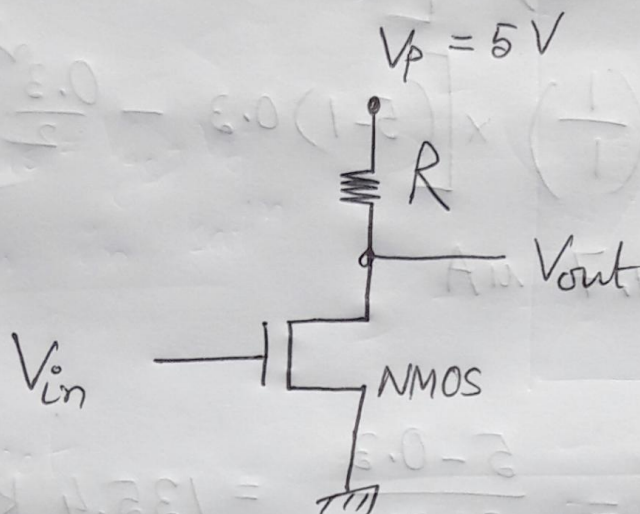 Vp = 5 V
R
Vout
Vin
NMOS